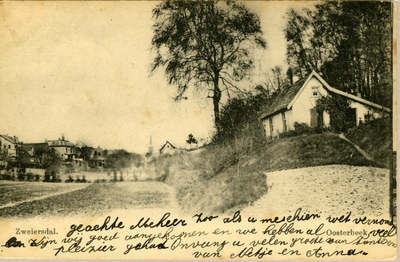 Zweiersdal. Oosterbeek.
geachte Meheer zoo als u meschien wel vernom
en zijn wij goed aangekomen en we hebben al veel
plezier gehad Onvang u velen groete van
van Metje en Anna